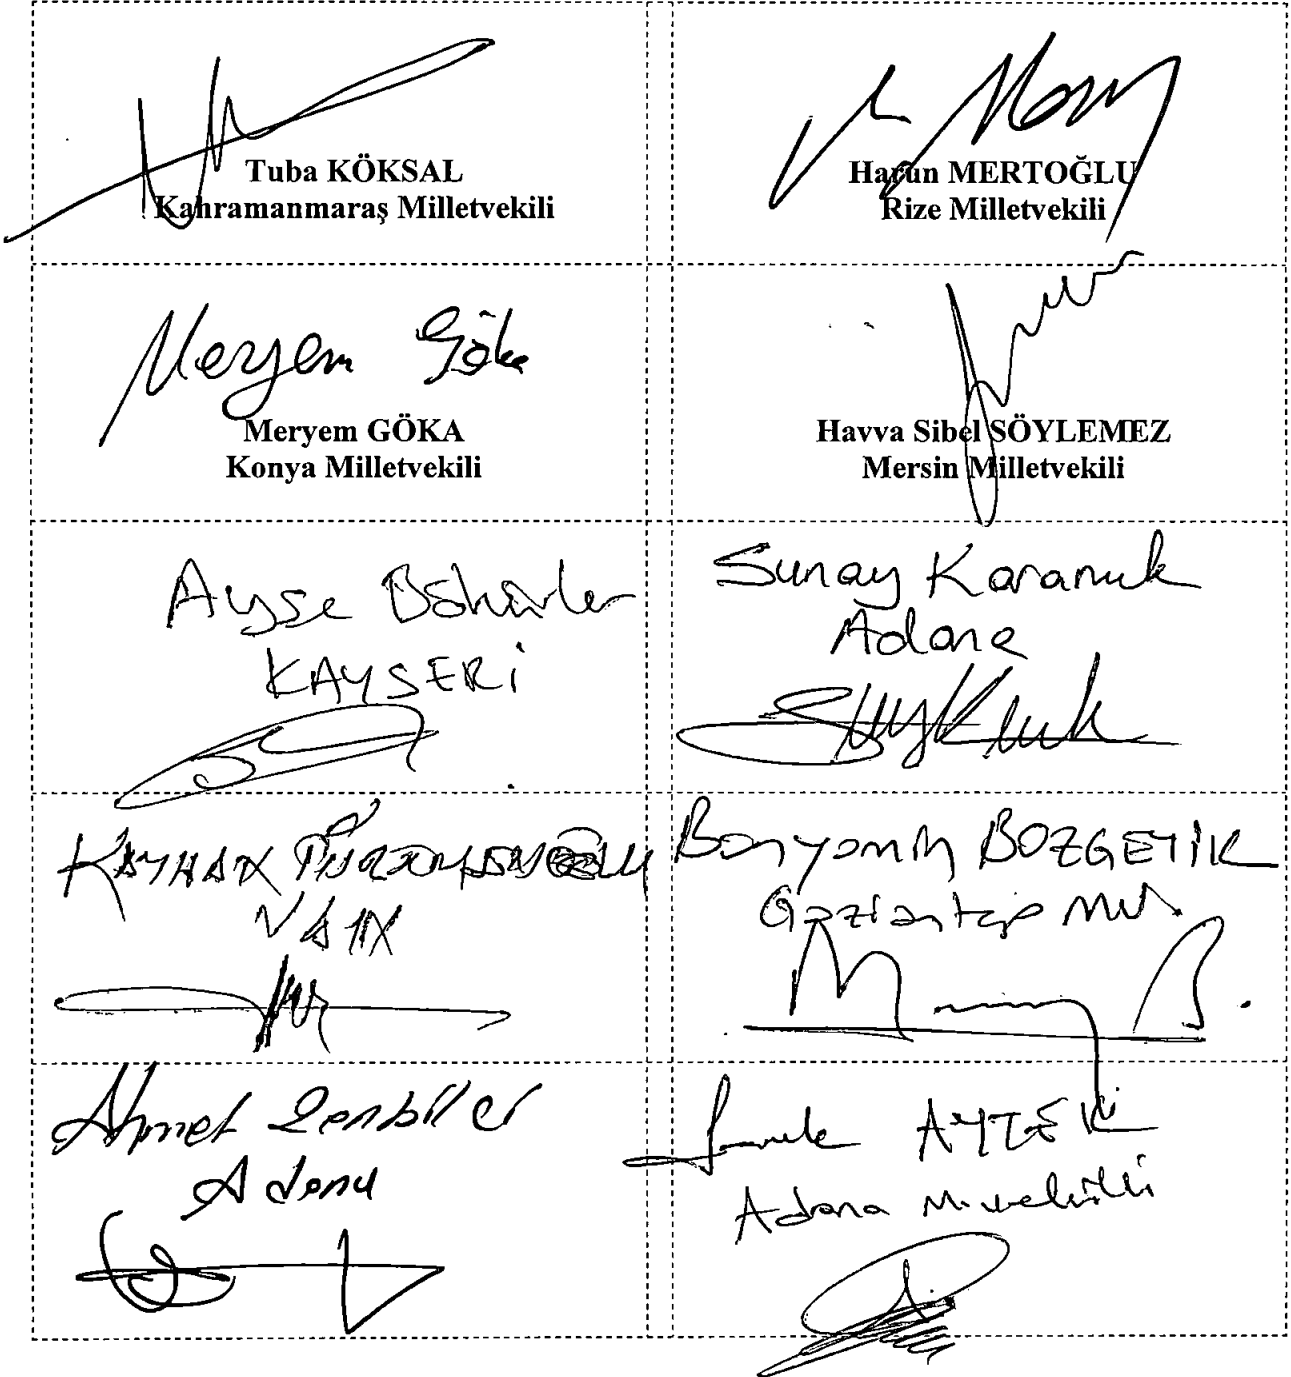 Tuba KÖKSAL
Kahramanmaraş Milletvekili
Harun MERTOĞLU
Rize Milletvekili
Meryem Göka
Meryem GÖKA
Konya Milletvekili
Havva Sibel SÖYLEMEZ
Mersin Milletvekili
Ayşe Böhürler
KAYSERİ
Sunay Karamık
Adana
KAYHAN TÜRKMENOĞLU
VAN
Bünyamin BOZGEYİK
Gaziantep MV.
Ahmet Zenbilci
Adana
Faruk AYTEK
Adana Milletvekili